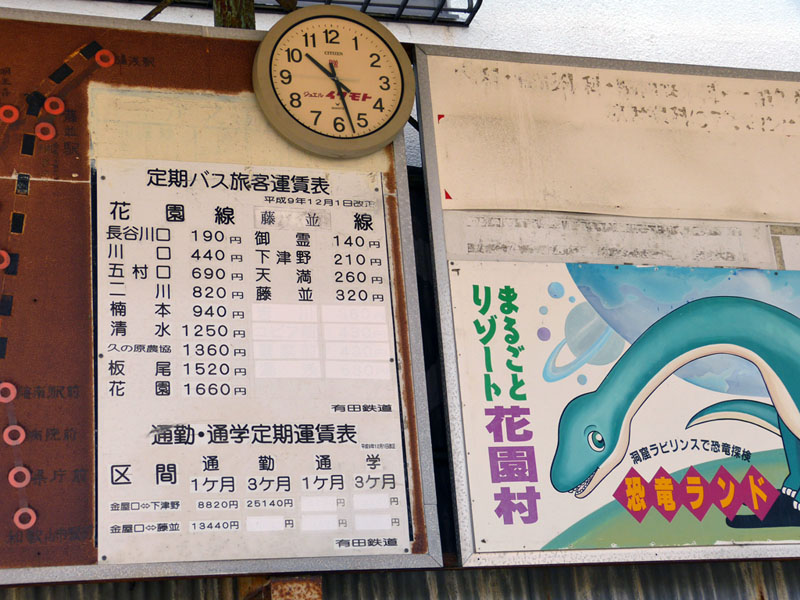 12
1
2
3
4
5
6
7
8
9
10
11
CITIZEN
ジュエル イケモト
定期バス旅客運賃表
平成9年12月1日改正
花園線 藤並線
長谷川口 190円 御霊 140円
川口 440円 下津野 210円
五村口 690円 天満 260円
二川 820円 藤並 320円
楠本 940円
清水 1250円
久の原農協 1360円
板尾 1520円
花園 1660円
有田鉄道
通勤・通学定期運賃表
区間 通勤 通学
1ケ月 3ケ月 1ケ月 3ケ月
金屋口⇔下津野 8820円 25140円 円 円
金屋口⇔藤並 13440円 円 円 円
有田鉄道
まるごと
リゾート
花園村
洞窟ラビリンスで恐竜探検
恐竜ランド
藤並駅
海南駅前
県庁前